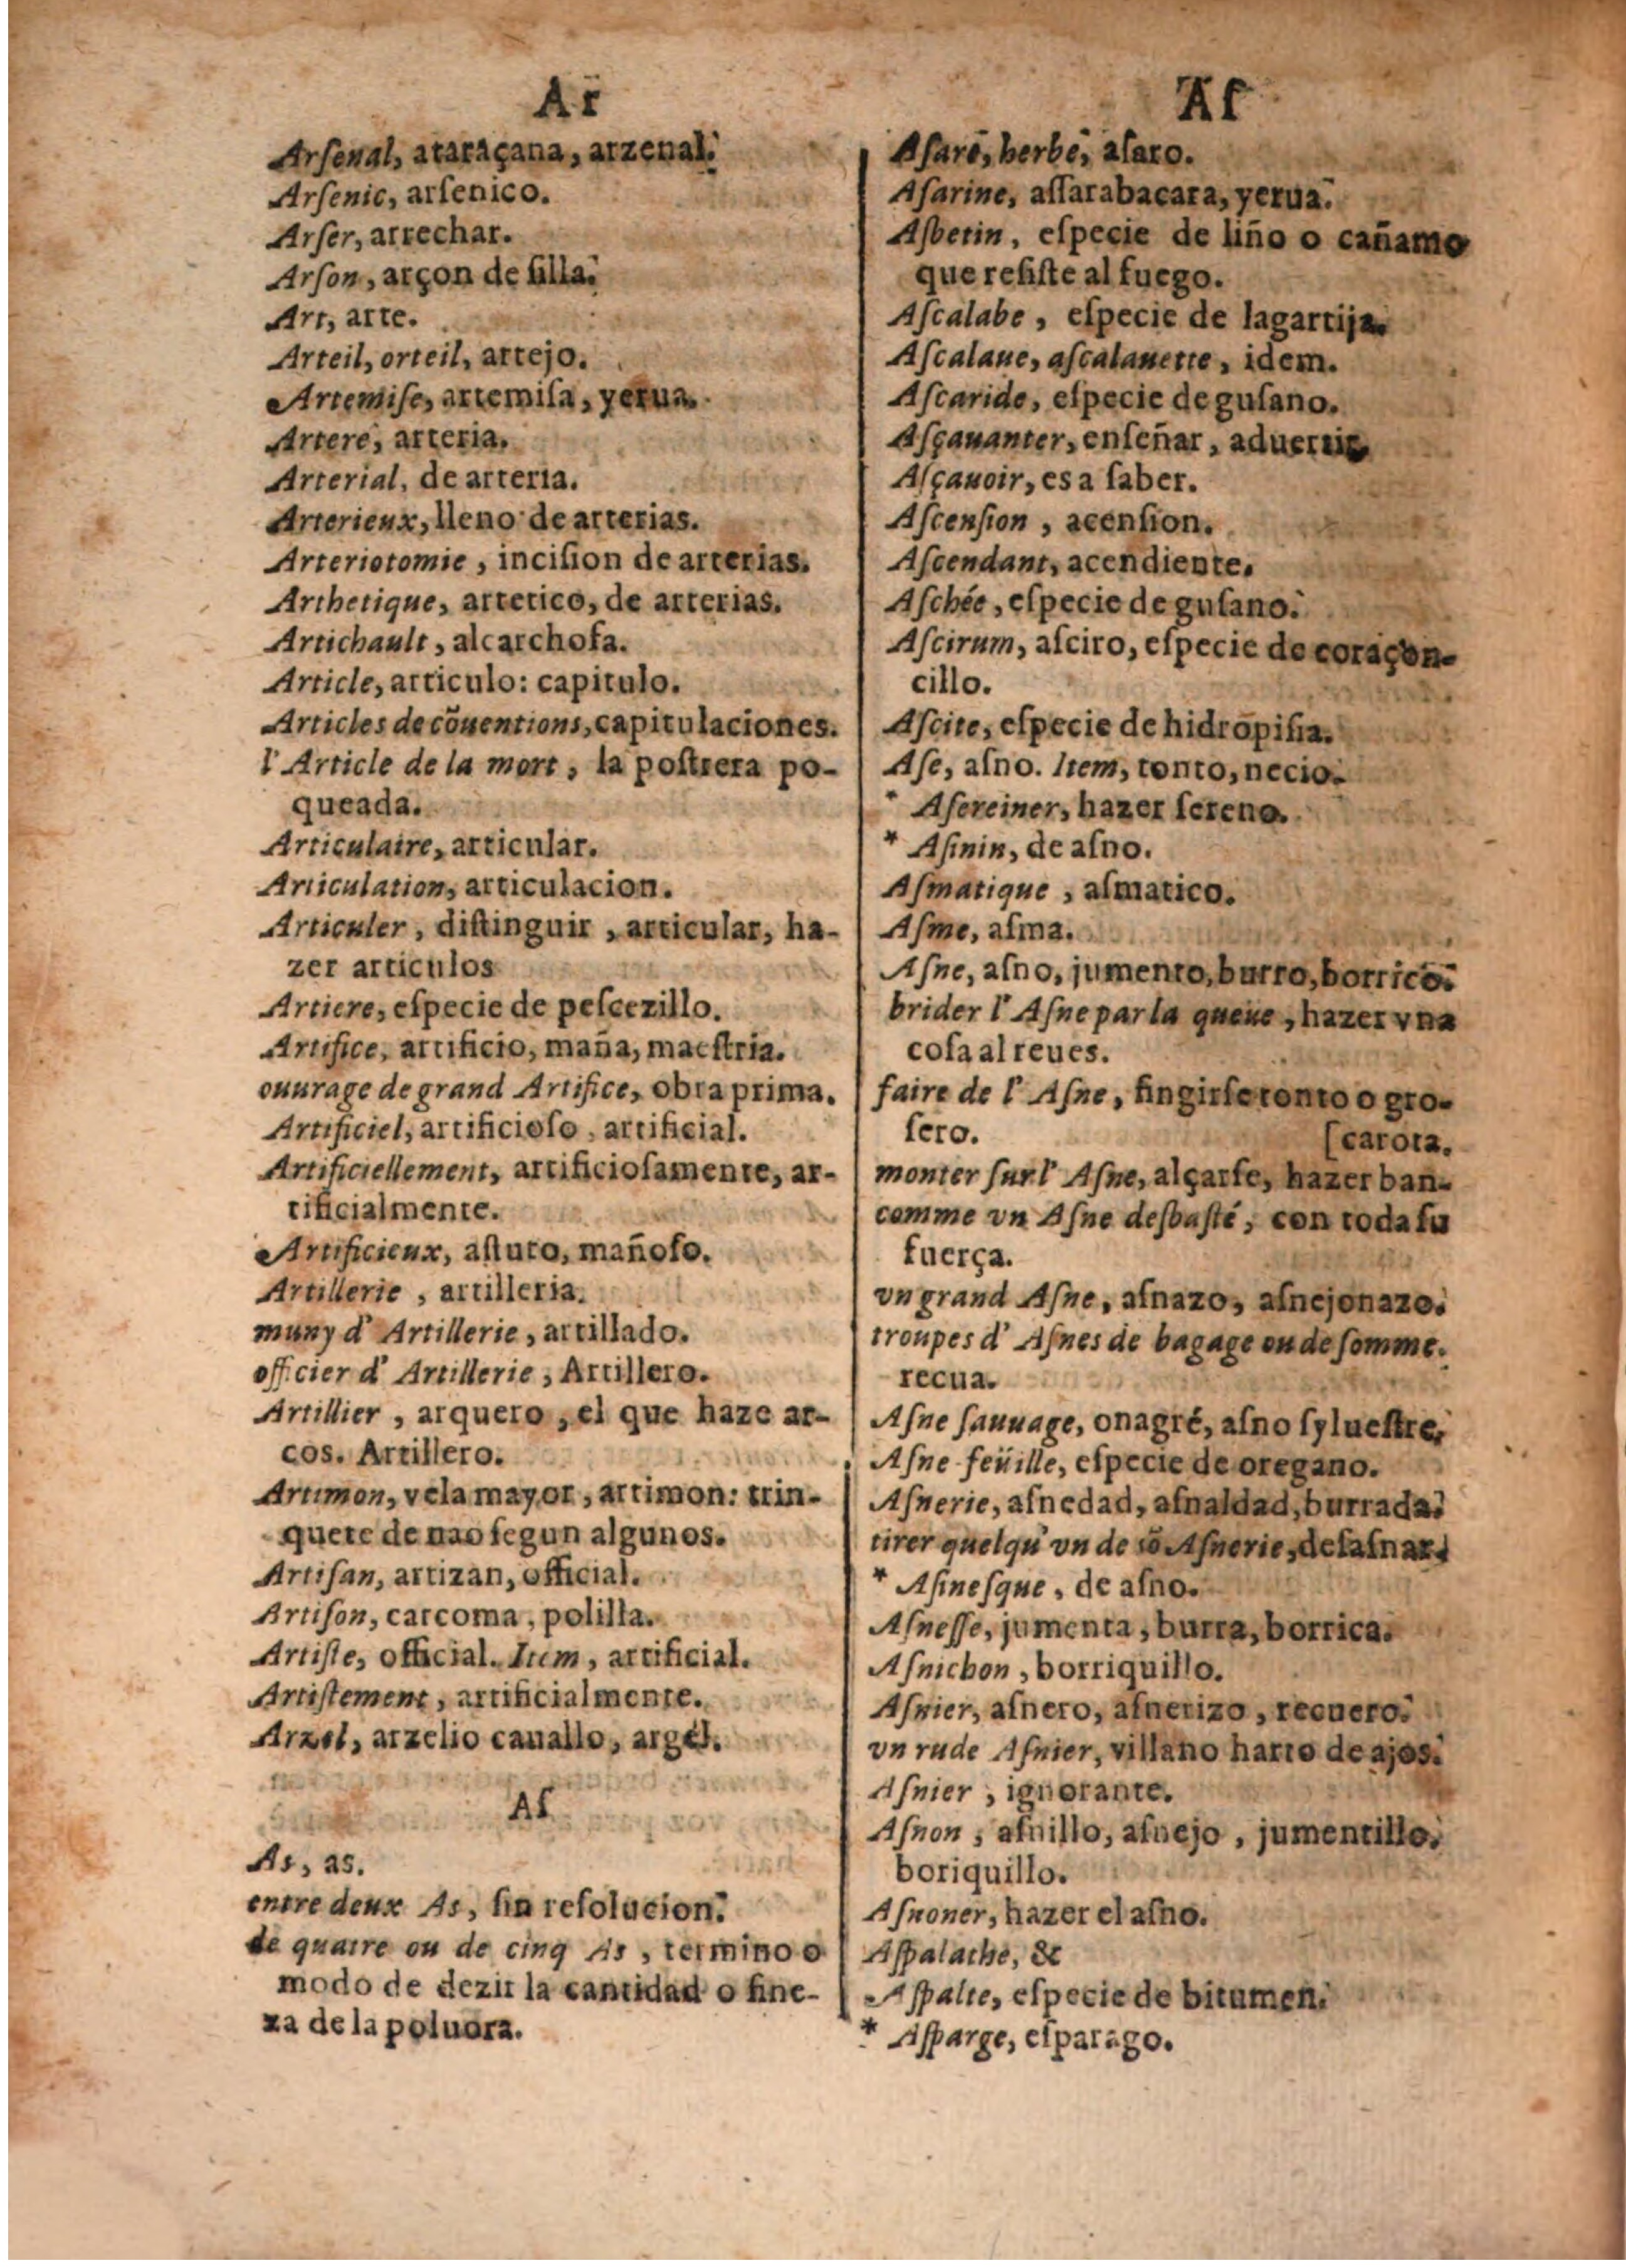 Ar
Arſenal, ataraçana, arzenal.
Arſenic, arſenico.
Arſer, arrechar.
Arſon, arçon de ſilla.
Art, arte.
Arteil, orteil, artejo.
Artemiſe, artemiſa, yerua.
Artere, arteria.
Arterial, de arteria.
Arterieux, lleno de arterias.
Arteriotomie, inciſion de arterias.
Arthetique, artetico, de arterias.
Artichault, alcarchofa.
Article, articulo: capitulo.
Articles de cõuentions, capitulaciones.
l'Article de la mort, la poſtrera po-
queada.
Articulaire, articular.
Articulation, articulacion.
Articuler, diſtinguir, articular, ha-
zer articulos
Artiere, eſpecie de peſcezillo.
Artifice, artificio, maña, maeſtria.
ouurage de grand Artifice, obra prima.
Artificiel, artificioſo, artificial.
Artificiellement, artificioſamente, ar-
tificialmente.
Artificieux, aſtuto, mañoſo.
Artillerie, artilleria.
muny d'Artillerie, artillado.
officier d'Artillerie, Artillero.
Artillier, arquero, el que haze ar-
cos. Artillero.
Artimon, vela mayor, artimon: trin-
quete de nao ſegun algunos.
Artiſan, artizan, official.
Artiſon, carcoma, polilla.
Artiſte, official. Item, artificial.
Artiſtement, artificialmente.
Arzel, arzelio cauallo, argel.
Aſ
As, as.
entre deux As, ſin reſolucion.
de quatre ou de cinq As, termino o
modo de dezir la cantidad o fine-
za de la poluora.
Aſ
Aſare, herbe, aſaro.
Aſarine, aſſarabacara, yerua.
Aſbetin, eſpecie de liño o cañamo
que reſiſte al fuego.
Aſcalabe, eſpecie de lagartija.
Aſcalaue, aſcalauette, idem.
Aſcaride, eſpecie de guſano.
Aſçauanter, enſeñar, aduertir.
Aſçauoir, es a ſaber.
Aſcenſion, acenſion.
Aſcendant, acendiente.
Aſchée, eſpecie de guſano.
Aſcirum, aſciro, eſpecie de coraçon-
cillo.
Aſcite, eſpecie de hidropiſia.
Aſe, aſno. Item, tonto, necio.
* Aſereiner, hazer ſereno.
* Aſinin, de aſno.
Aſmatique, aſmatico.
Aſme, aſma.
Aſne, aſno, jumento, burro, borrico.
brider l'Aſne par la queue, hazer vna
coſa al reues.
faire de l'Aſne, fingirſe tonto o gro-
ſero. [carota.
monter ſur l'Aſne, alçarſe, hazer ban-
comme vn Aſne deſbaſté, con toda ſu
fuerça.
vn grand Aſne, aſnazo, aſnejonazo.
troupes d'Aſnes de bagage ou de ſomme.
recua.
Aſne ſauuage, onagré, aſno ſylueſtre.
Aſne feüille, eſpecie de oregano.
Aſnerie, aſnedad, aſnaldad, burrada.
tirer quelqu'vn de sõ Aſnerie, deſaſnar.
* Aſineſque, de aſno.
Aſneſſe, jumenta, burra, borrica.
Aſnichon, borriquillo.
Aſnier, aſnero, aſnerizo, recuero.
vn rude Aſnier, villano harto de ajos.
Aſnier, ignorante.
Aſnon, aſnillo, aſnejo, jumentillo,
boriquillo.
Aſnoner, hazer el aſno.
Aſpalathe, &
Aſpalte, eſpecie de bitumen.
* Aſparge, eſparago.